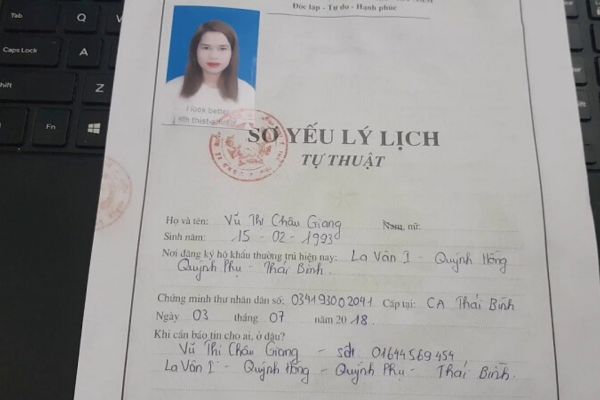 Độc lập - Tự do - Hạnh phúc
Tab
Q
Caps Lock
A
Shift
Z
Fn
I look better
SƠ YẾU LÝ LỊCH
TỰ THUẬT
Họ và tên: Vũ Thị Châu Giang Nam, nữ:
Sinh năm: 15 - 02 - 1993
Nơi đăng ký hộ khẩu thường trú hiện nay: La Vân I - Quỳnh Hồng
Quỳnh Phụ - Thái Bình.
Chứng minh thư nhân dân số: 034193002041 Cấp tại: CA Thái Bình
Ngày 03 tháng 07 năm 2018.
Khi cần báo tin cho ai, ở đâu?
Vũ Thị Châu Giang - sđt 01644569454
La Vân I - Quỳnh Hồng - Quỳnh Phụ - Thái Bình.